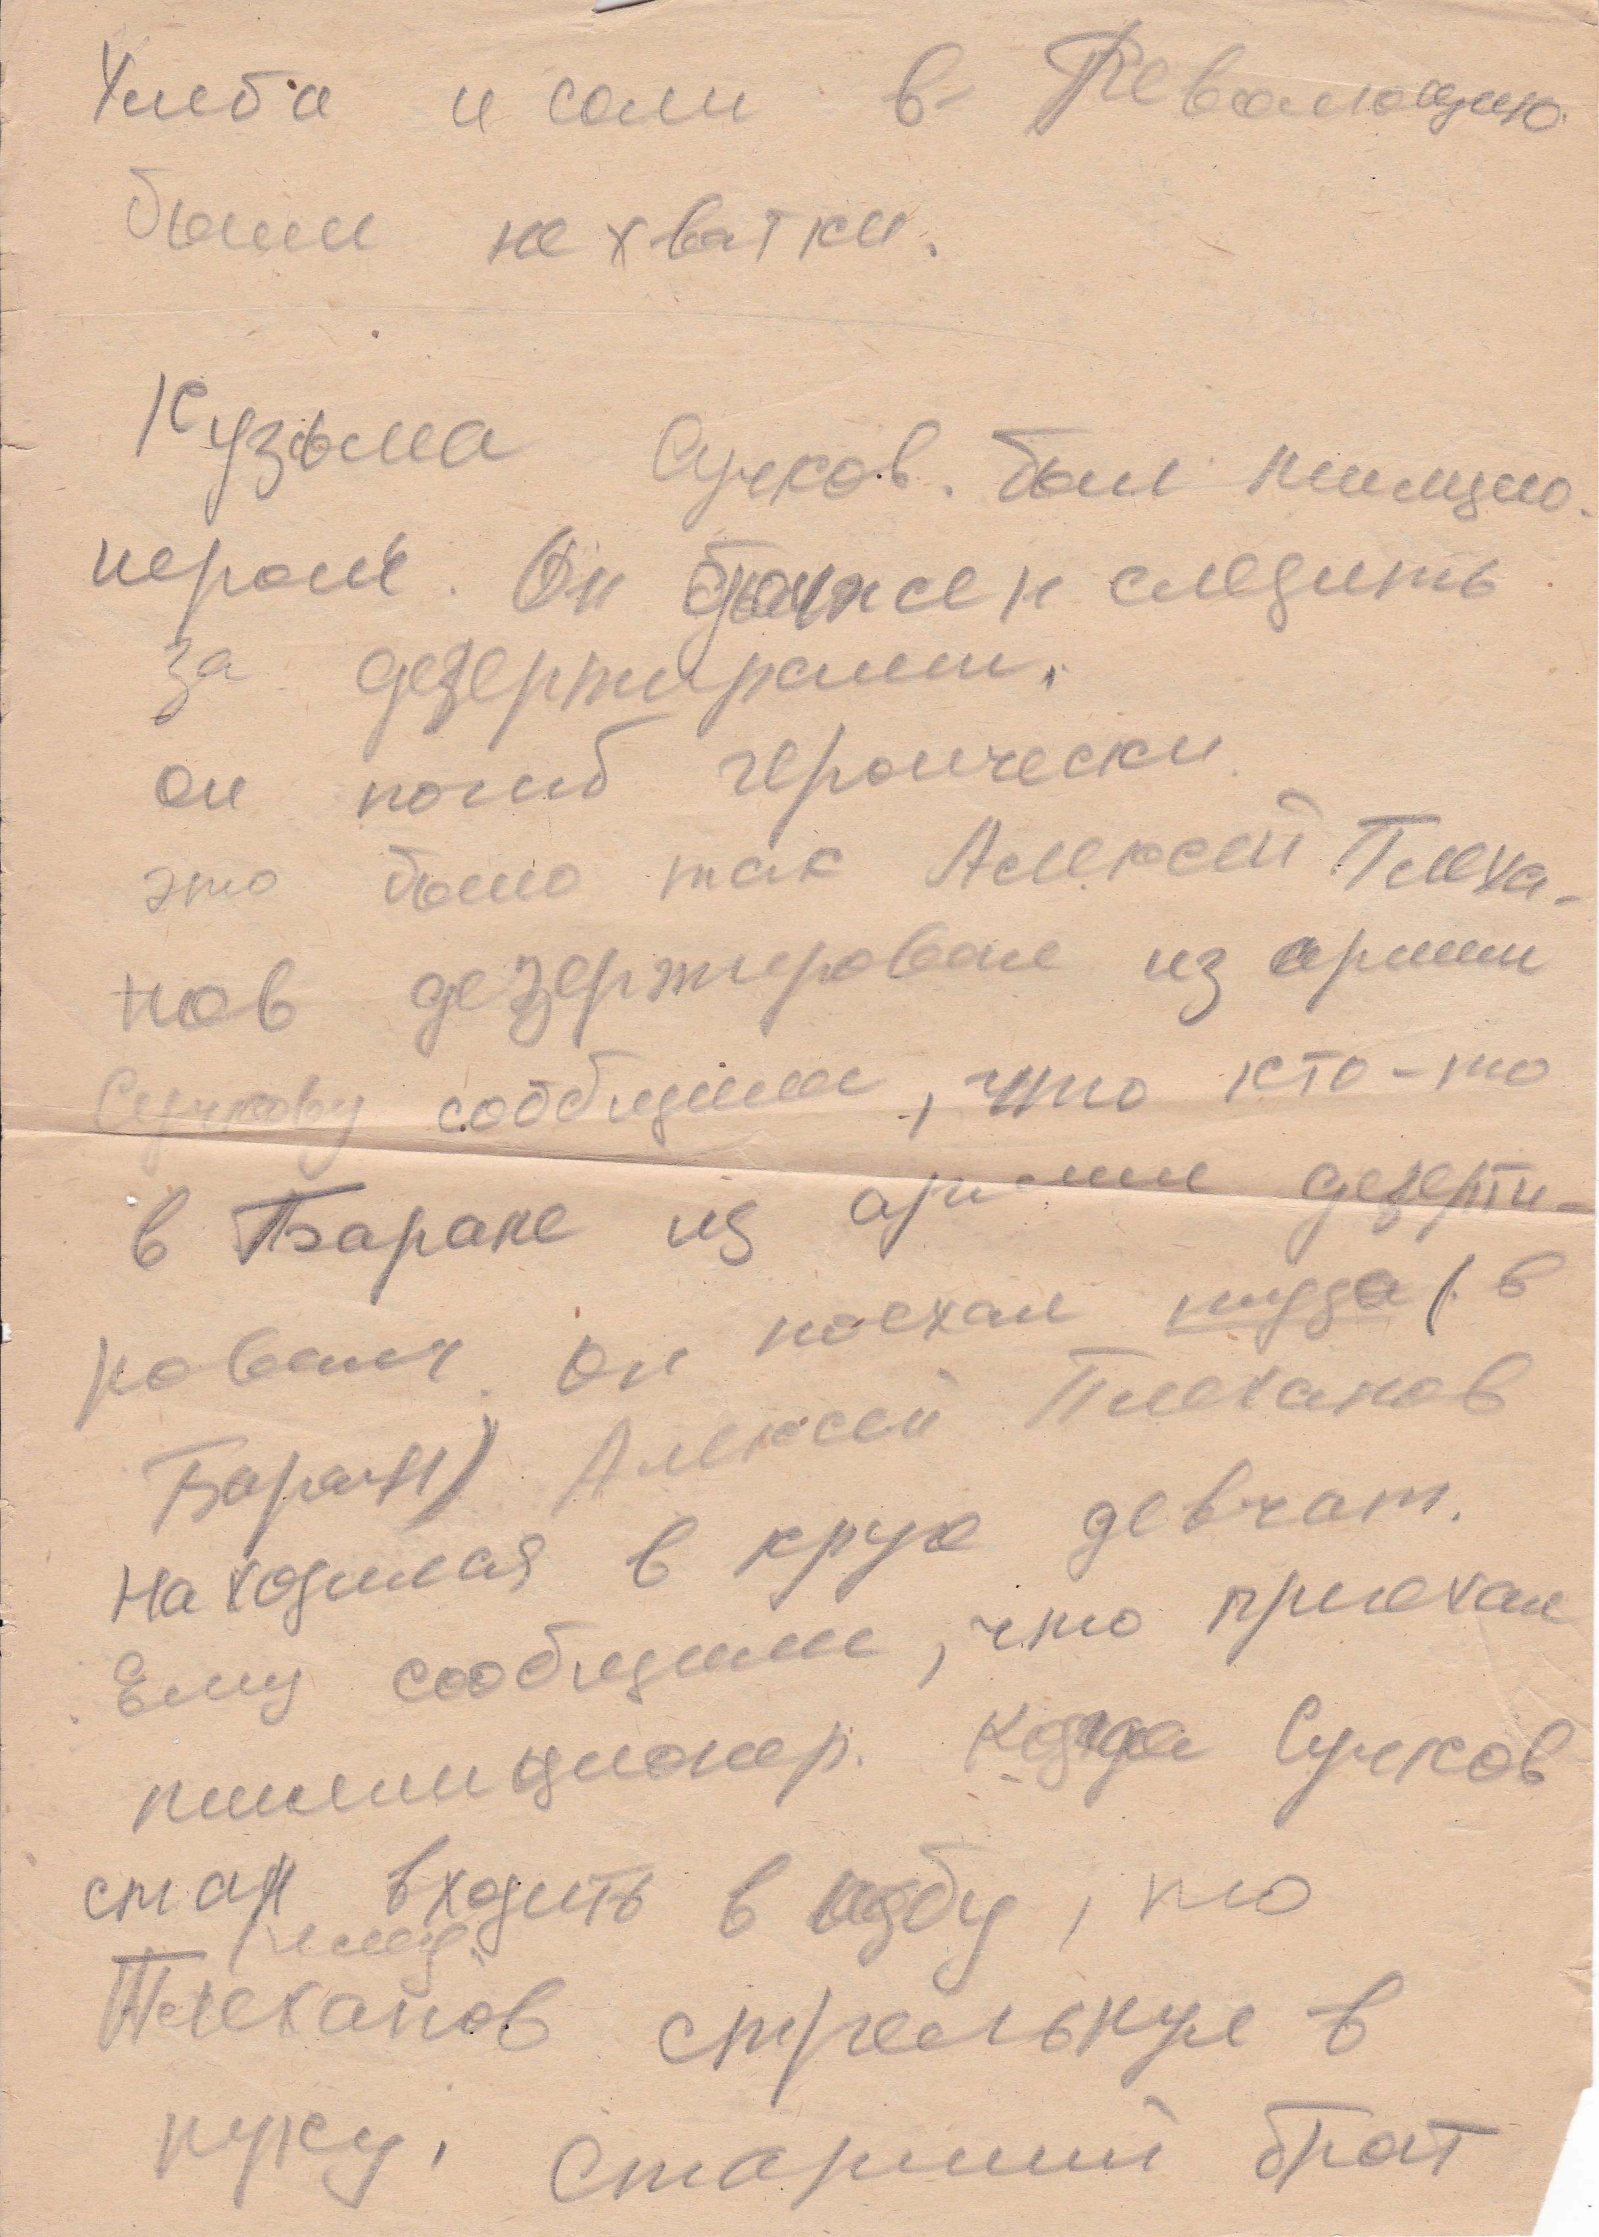 Хлеба и соли в Революцию
были нехватки.
Кузьма Сучков. был милицио-
нером. Он должен следить
за дезертирами.
он погиб героически.
это было так Алексей Плеха-
нов дезертировал из армии
Сучкову сообщили, что кто-то
в Баране из армии дезерти-
ровали. Он поехал туда (в
Баран) Алексей Плеханов
находился в круге девчат.
Ему сообщили, что приехал
милиционер. Когда Сучков
стал входить в избу, то
Плеханов стрельнул в
руку. Старший брат